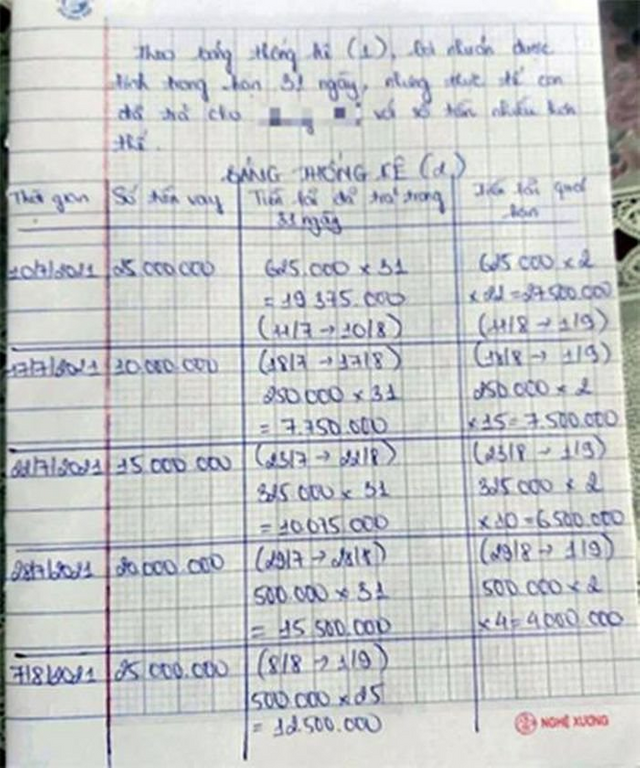 Theo bảng thống kê (1), lợi nhuận được
tính trong hạn 31 ngày, nhưng thực tế con
đã trả cho và số tiền nhiều hơn
thế.
BẢNG THỐNG KÊ (2)
Thời gian Số tiền vay Tiền lãi đã trả trong Tiền lãi quá
31 ngày hạn
10/7/2021 25.000.000 625.000 x 31 625.000 x 2
= 19 375.000 x 22 = 27500.000
(11/7 → 10/8) (11/8 → 1/9)
17/7/2021 10.000.000 (18/7 → 17/8) (18/8 → 1/9)
250.000 x 31 250.000 x 2
= 7.750.000 x 15 = 7.500.000
22/7/2021 15.000.000 (23/7 → 22/8) (23/8 → 1/9)
325.000 x 31 325.000 x 2
= 10.075.000 x 10 = 6.500.000
28/7/2021 20.000.000 (29/7 → 28/8) (29/8 → 1/9)
500.000 x 31 500.000 x 2
= 15.500.000 x 4 = 4000.000
7/8/2021 25.000.000 (8/8 → 1/9)
500.000 x 25
= 12.500.000
NGHỆ XƯƠNG